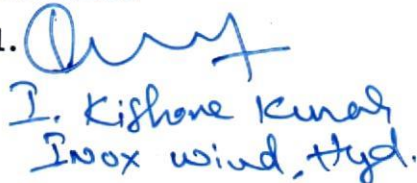 1.
I. Kishore Kumar
Inox Wind, Hyd.